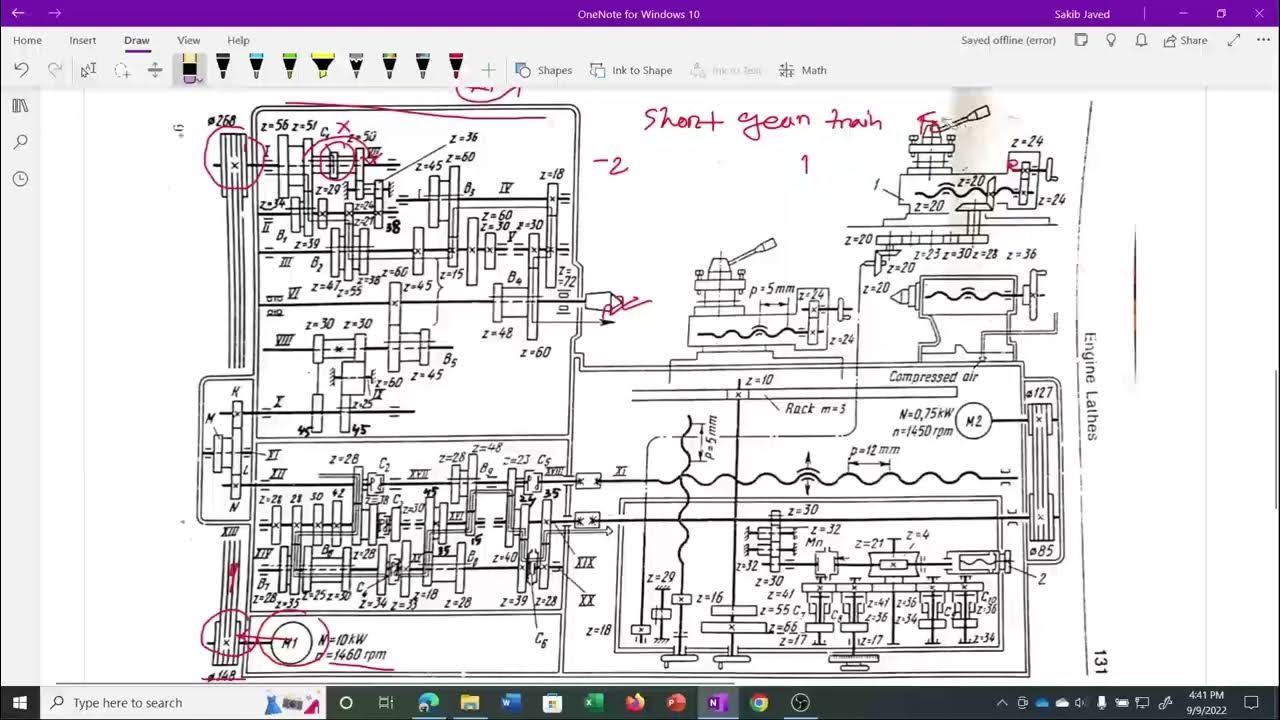 OneNote for Windows 10
Sakib Javed
Home Insert Draw View Help
Saved offline (error)
Share
Shapes
Ink to Shape
Ink to Text
Math
Short gear train
-2
1
ø268
z=56 z=51 C1 x
z=50
z=36
z=45 z=60
z=18
z=29
B3 IV
z=34
II
z=24
z=21
38
B1
z=39
z=60
z=30 V z=30
III
B2
z=47
z=55
z=38
z=60 z=45
z=15
B4
z=72
VI
z=48
z=60
z=30 z=30
VIII
B5
z=60 z=45
IX
z=25
X
45 45
K
M
XI
L
N
XII
XIII
z=28
C2
XVII
z=28
z=48
B9
z=23
C5
XVIII
XI
z=28 28 30 42
z=38
C3
z=30
45
XVI
35
15
35
XIV
B7
z=28
z=35
z=25
z=30
z=28
C4
z=34
z=33
z=18
z=28
z=40
XIX
XX
z=39 z=28
C6
M1
N=10 kW
n=1460 rpm
ø148
1
z=24
z=20
z=20
z=24
z=20
z=23 z=30 z=28 z=36
z=20
z=20
p=5mm
z=24
z=24
Compressed air
z=10
Rack m=3
p=5mm
N=0,75kW
n=1450 rpm
M2
ø127
p=12 mm
z=30
z=32
Mn
z=32
z=30
z=21 z=4
2
ø85
z=29
z=41
z=16
z=55
z=66
z=18
C7
z=17
C8
z=41
z=36
z=17
z=36
z=36
z=34
z=36
z=34
Engine Lathes
131
Type here to search
4:41 PM
9/9/2022